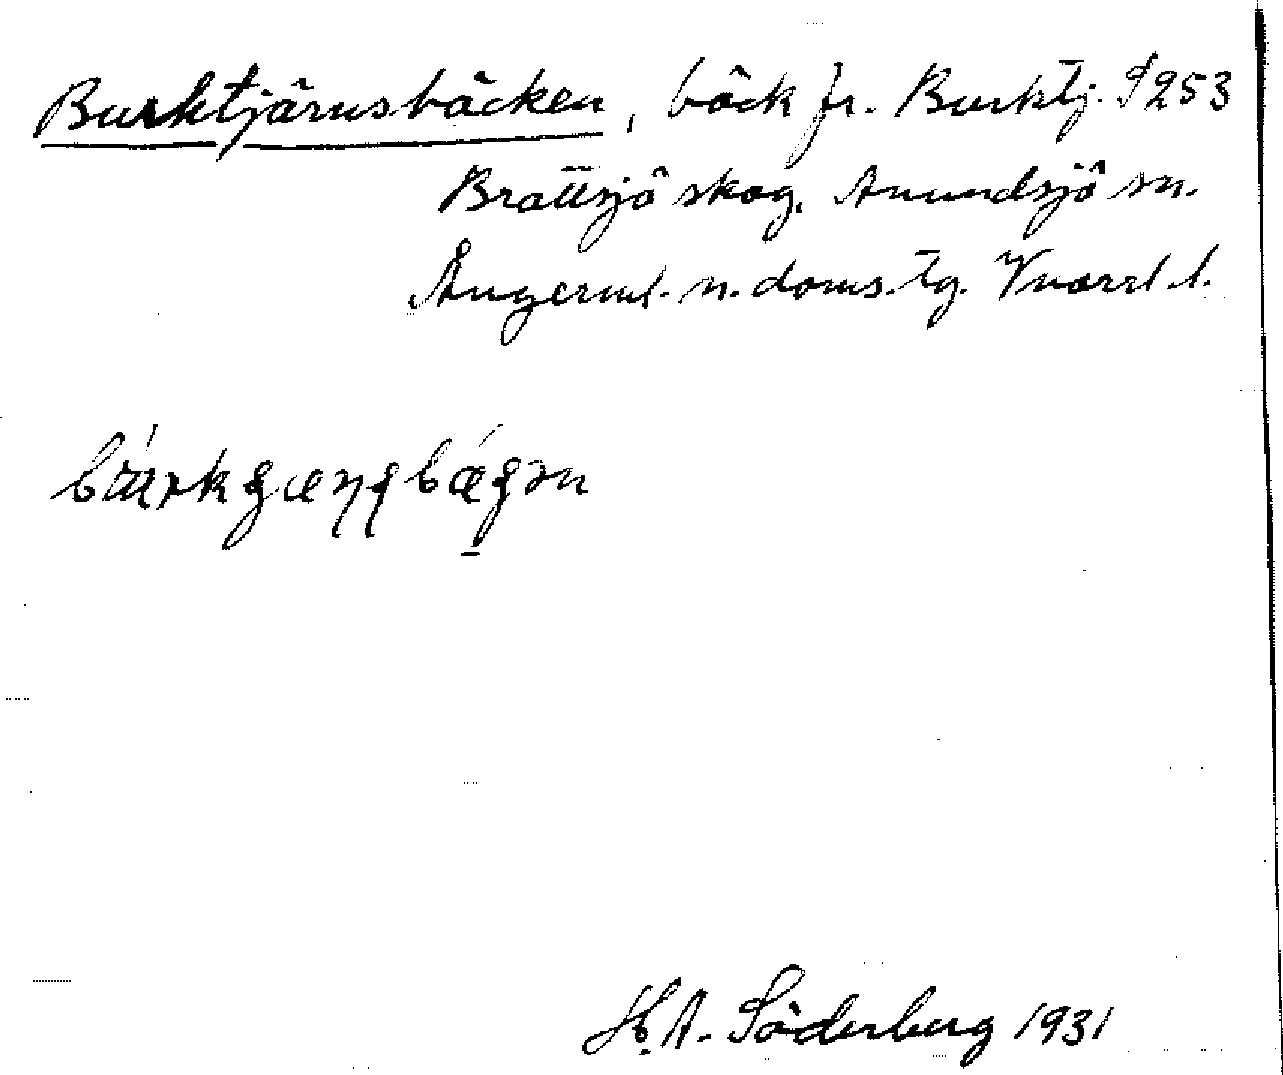 Burktjärnsbäcken, bäck fr. Burktj. 253
Brattsjö skog, Anundsjö sn.
Ångerml. n. doms. tg. Vnorrl. l.
H. A. Söderberg 1931